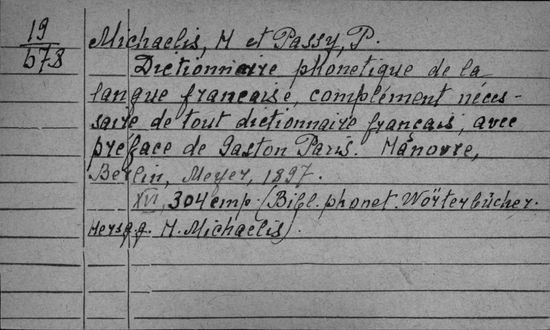 19
678
Michaelis, H et Passy, P.
Dictionnaire phonetique de la
langue française, complément néces-
saire de tout dictionnaire français, avec
préface de Gaston Paris. Hanovre,
Berlin, Meyer, 1897.
XVI, 304 стр. (Bibl. phonet. Wörterbücher.
Hersgg. H. Michaelis).